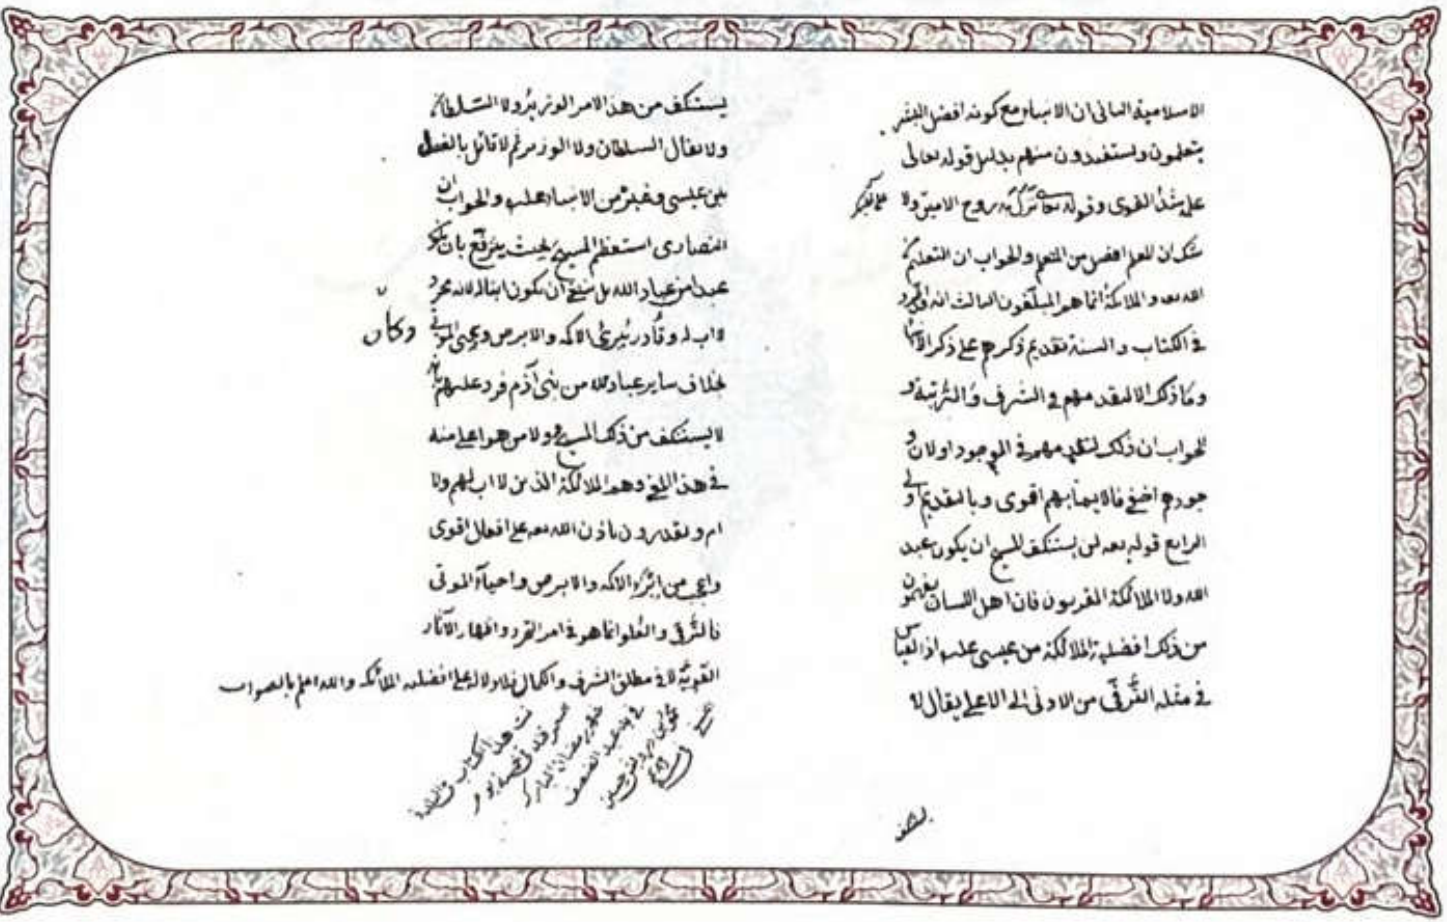 الاسلامية الثانى ان الانبياء مع كونه افضل البشر
يتعلمون ويستفيدون منهم بدليل قوله تعالى
علمه شديد القوى وقوله تعالى نزل به روح الامين ولا
شك ان المعلم افضل من المتعلم والجواب ان التعليم
الله تعه والملائكة انما هم المبلّغون الثالث انه
فى الكتاب والسنة تقديم ذكرهم على ذكر الانبيا
وما ذلك الا لتقدمهم فى الشرف والرتبة و
الجواب ان ذلك لتقدمهم فى الوجود او لان و
جودهم اخفى فالايمان بهم اقوى وبالتقديم اولى
الرابع قوله تعه لن يستنكف المسيح ان يكون عبد
الله ولا الملائكة المقربون فان اهل اللسان يفهمون
من ذلك افضلية الملائكة من عيسى عليه اذ القياس
فى مثله الترقّى من الادنى الى الاعلى يقال لا
يستنكف
يستنكف من هذا الامر الوزير ولا السلطان
ولا يقال السلطان ولا الوزير ثم لا قائل بالفصل
بين عيسى وغيره من الانبياء عليه والجواب ان
النصارى استعظم المسيح بحيث يترفع بان يكون
عبدا من عباد الله بل ينبغى ان يكون ابنا له لانه مجرد
لا اب له وقادر يبرئ الاكمه والابرص ويحيى الموتى وكان
بخلاف ساير عباد الله من بنى آدم فرد عليهم بانه
لا يستنكف من ذلك المسيح ولا من هو اعلى منه
فى هذا المعنى وهم الملائكة الذين لا اب لهم ولا
ام ويقدرون باذن الله تعه على افعال اقوى
واعجب من ابراء الاكمه والابرص واحياء الموتى
فالترقى والعلو انما هو فى امر التجرد واظهار الآثار
القويّة لا فى مطلق الشرف والكمال فلا دلالة على افضلية الملائكة والله اعلم بالصواب
تمت هذا الكتاب
شهر رمضان المبارك